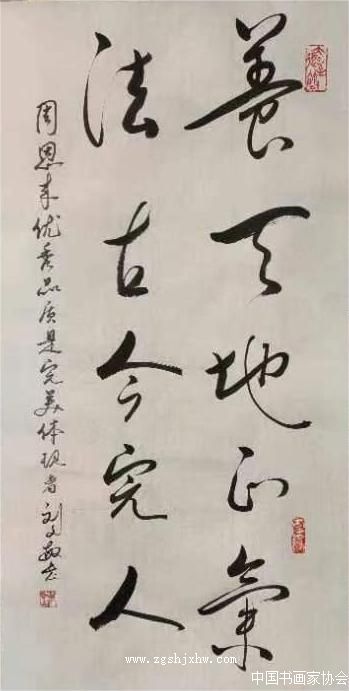 養天地正氣
法古今完人
周恩来优秀品质是完美体现者刘文敏书
www.zgshjxhw.com
中国书画家协会